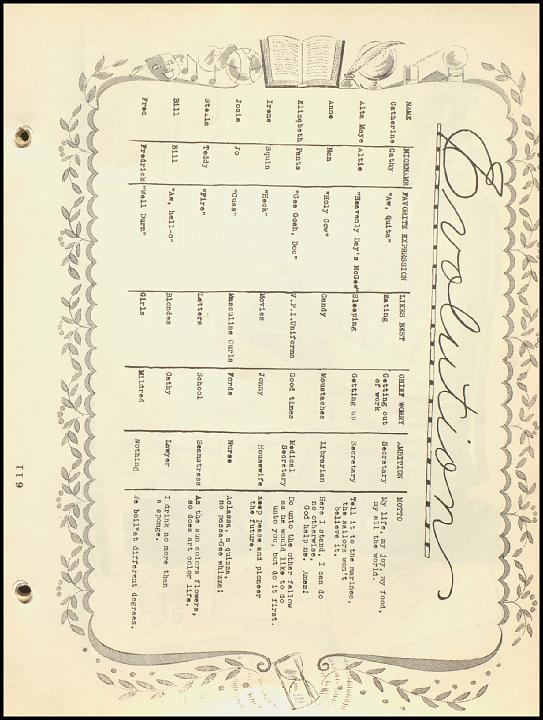 Evolution
NAME NICKNAME FAVORITE EXPRESSION LIKES BEST CHIEF WORRY AMBITION MOTTO
Catherine Cathy "Aw, Quita" Eating Getting out Secretary My life, my joy, my food,
of work my all the world.
Alta Maye Altie "Heavenly Day's McGee" Sleeping Getting up Secretary Tell it to the marines,
the sailors won't
believe it.
Anne Nan "Holy Cow" Candy Moustaches Librarian Here I stand, I can do
no otherwise,
God help me. Amen!
Elizabeth Pants "Gee Gosh, Doc" V.P.I.Uniforms Good times Medical Do unto the other fellow
Secretary as he would like to do
unto you, but do it first.
Irene Squin "Heck" Movies Jonny Housewife Keep peace and pioneer
the future.
Josie Jo "Cuss" Masculine Curls Fords Nurse Aclassa, a quizza,
no passa-Gee whizza!
Stella Teddy "Fire" Letters School Seamstress As the sun colors flowers,
so does art color life.
Bill Bill "Aw, hell-o" Blondes Cathy Lawyer I drink no more than
a sponge.
Fred Fredrick "Well Durn" Girls Mildred Nothing We boil at different degrees.
119